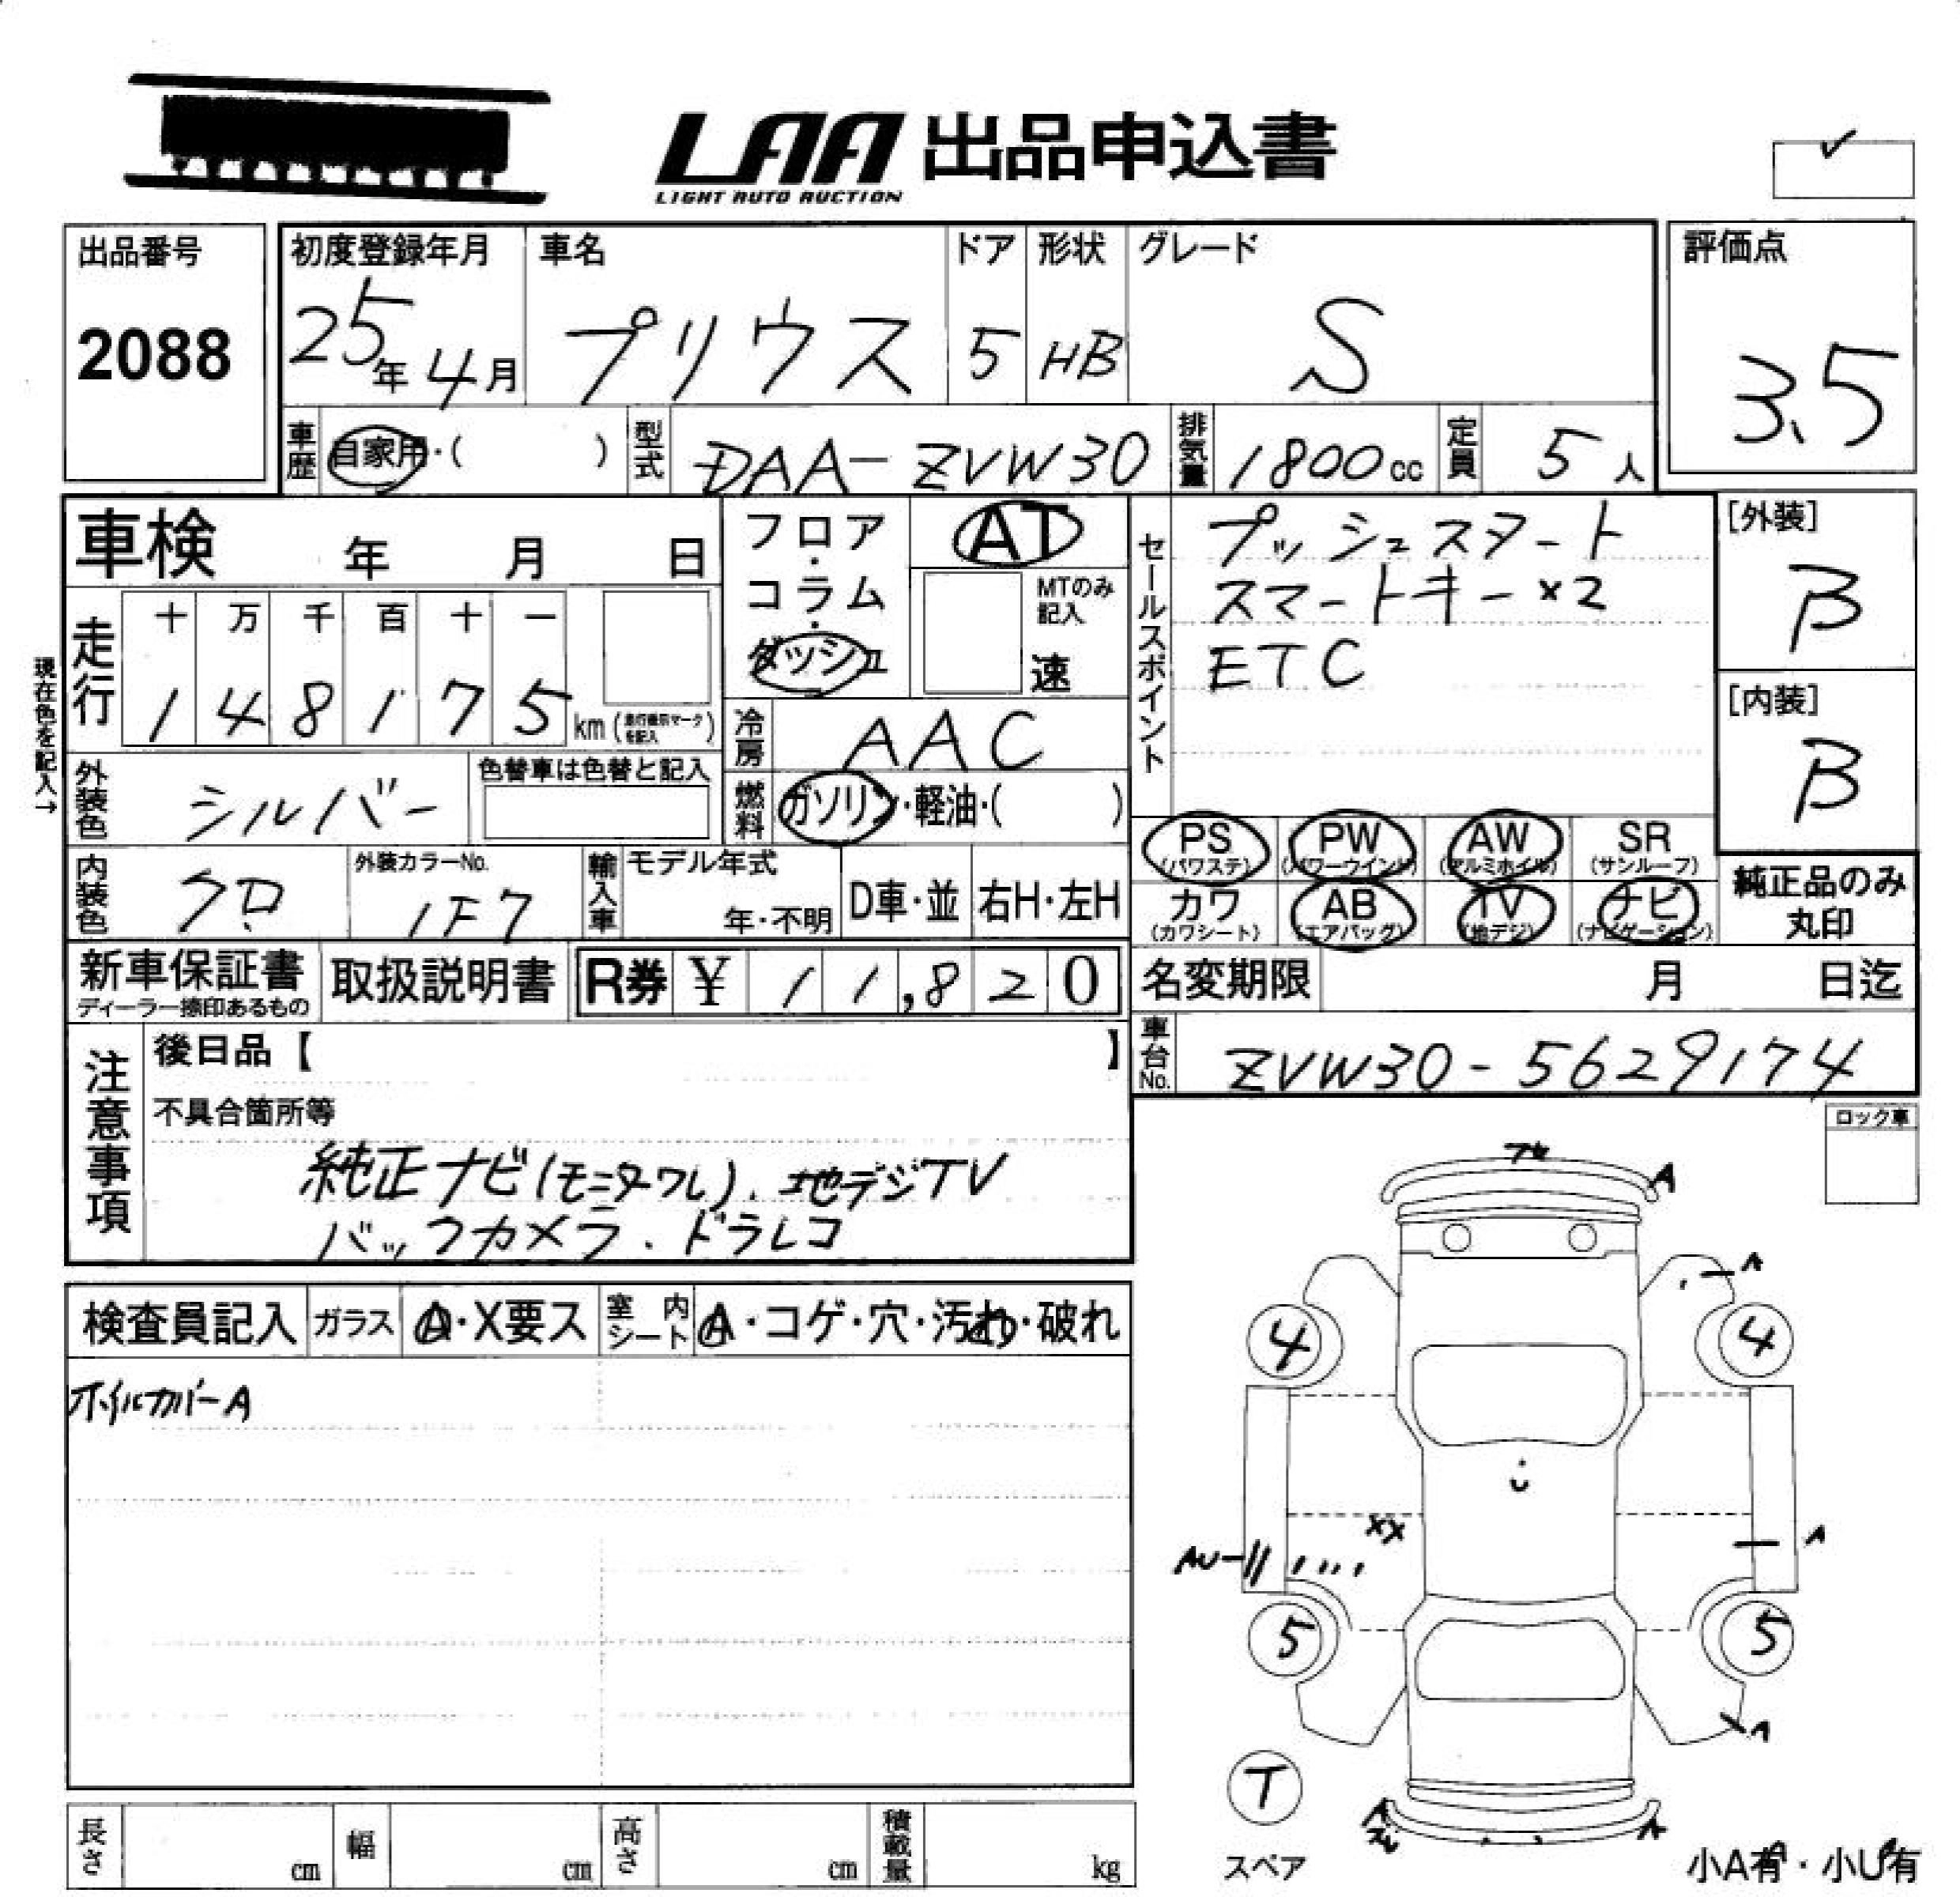 LAA 出品申込書
LIGHT AUTO AUCTION
✓
出品番号
2088
初度登録年月
25年4月
車名
プリウス
ドア
5
形状
HB
グレード
S
評価点
3.5
車歴
自家用・( )
型式
DAA-ZVW30
排気量
1800cc
定員
5人
車検 年 月 日
フロア・コラム・ダッシュ
AT
MTのみ記入
速
セールスポイント
プッシュスタート
スマートキー×2
ETC
[外装]
B
[内装]
B
現在色を記入→
走行
十 万 千 百 十 一
1 4 8 1 7 5 km (走行機前マークを記入)
冷房
AAC
外装色
シルバー
色替車は色替と記入
燃料
ガソリン・軽油・( )
内装色
クロ
外装カラーNo.
1F7
輸入車
モデル年式
年・不明
D車・並
右H・左H
PS (パワステ)
PW (パワーウインド)
AW (アルミホイル)
SR (サンルーフ)
カワ (カワシート)
AB (エアバッグ)
TV (地デジ)
ナビ (ナビゲーション)
純正品のみ
丸印
新車保証書
ディーラー捺印あるもの
取扱説明書
R券 ¥ 11,820
名変期限 月 日迄
車台No.
ZVW30-5629174
注意事項
後日品【 】
不具合箇所等
純正ナビ(モニタワレ)、地デジTV
バックカメラ、ドラレコ
ロック車
検査員記入
ガラス
A・X要ス
室内シート
A・コゲ・穴・汚れ・破れ
ホイルカバーA
A
A
4
4
XX
AU
A
5
5
A
T
スペア
A
小A有・小U有
長さ cm
幅 cm
高さ cm
積載量 kg